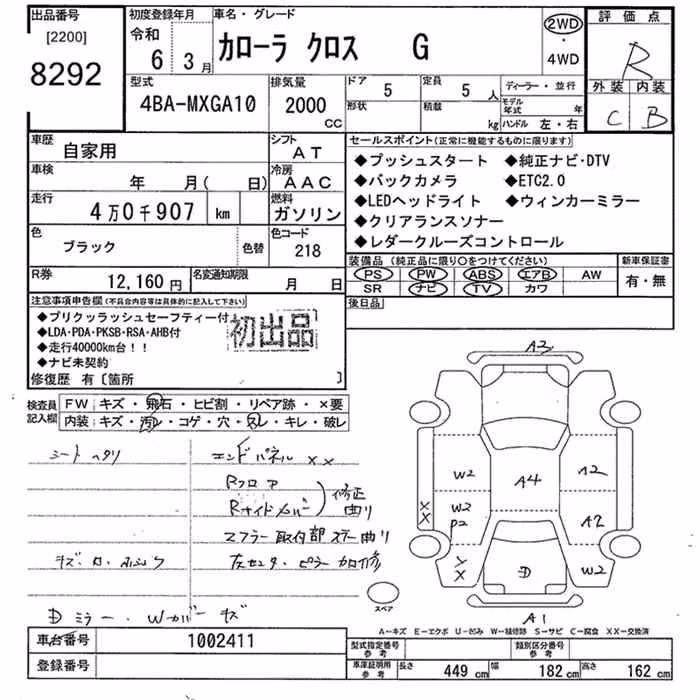 出品番号
[2200]
8292
初度登録年月
令和
6 3月
車名・グレード
カローラ クロス G
2WD
・
4WD
評価点
R
外装 内装
C B
型式
4BA-MXGA10
排気量
2000 CC
ドア 5
形状
定員 5 人
積載 kg
ディーラー・並行
モデル年式 年
ハンドル 左・右
車歴 自家用
シフト AT
車検 年 月( 日)
冷房 AAC
走行 4万0千907 km
燃料 ガソリン
色 ブラック 色替
色コード 218
R券 12,160円
名変通知期限 月 日
セールスポイント(正常に機能するものに限ります)
◆プッシュスタート ◆純正ナビ・DTV
◆バックカメラ ◆ETC2.0
◆LEDヘッドライト ◆ウィンカーミラー
◆クリアランスソナー
◆レダークルーズコントロール
装備品(純正品に限り○をつけてください)
PS PW ABS エアB AW
SR ナビ TV カワ
新車保証書
有・無
後日品
注意事項申告欄(不具合内容等は具体的に記入して下さい)
◆プリクッラッシュセーフティー付
◆LDA・PDA・PKSB・RSA・AHB付
◆走行40000km台！！
◆ナビ未契約
初出品
修復歴 有〔箇所 〕
検査員記入欄
FW キズ・飛石・ヒビ割・リペア跡・×要
内装 キズ・汚レ・コゲ・穴・スレ・キレ・破レ
シートヘタリ
エンドパネル ××
Rフロア
Rサイドメンバー
修正
曲り
マフラー取付部ステー曲り
左センターピラー加修
Dミラー・Wカバーキズ
A3
W2
A4
A2
××
W2
P2
A2
××
D
W2
スペア
A1
A-キズ E-エクボ U-凹み W-補修跡 S-サビ C-腐食 XX-交換済
車台番号 1002411
登録番号
型式指定番号 参考
類別区分番号 参考
車庫証明用 参考
長さ 449 cm
幅 182 cm
高さ 162 cm